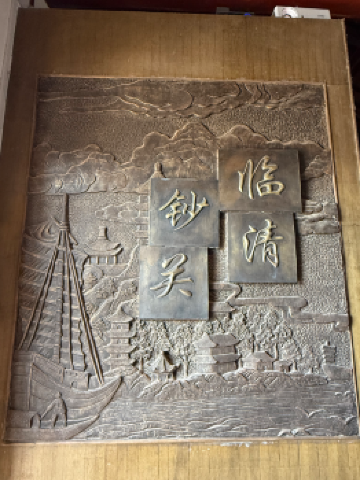 临清
钞关